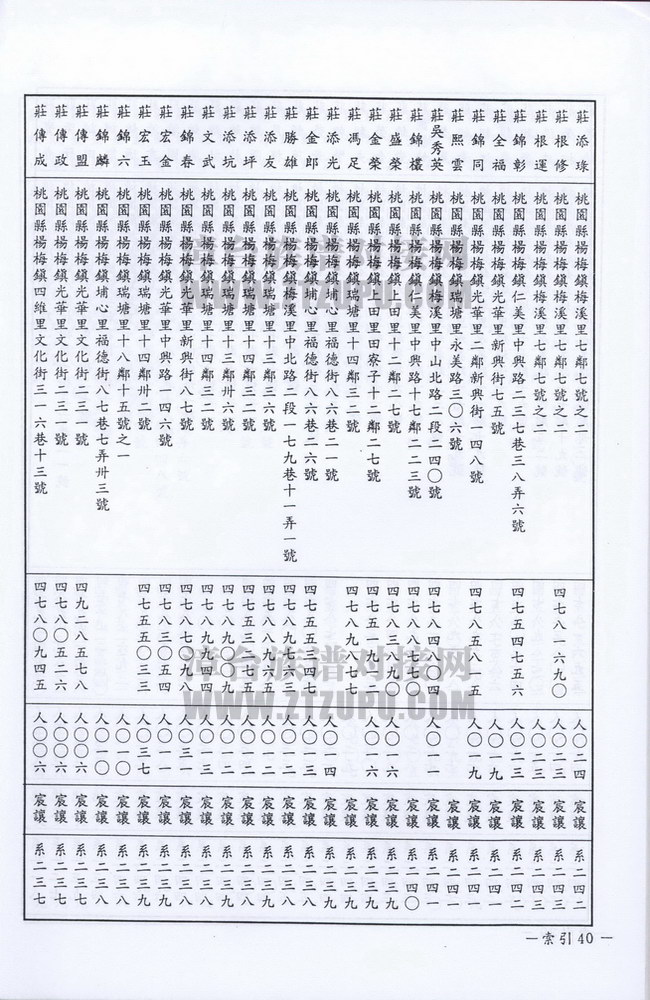 莊添琭 桃園縣楊梅鎮梅溪里七鄰七號之二 人〇二四 宸讓 系二四二
莊根修 桃園縣楊梅鎮梅溪里七鄰七號 四七八一六九〇 人〇二三 宸讓 系二四三
莊根運 桃園縣楊梅鎮梅溪里七鄰七號之二 人〇二三 宸讓 系二四三
莊錦彰 桃園縣楊梅鎮仁美里中興路二三七巷三八弄六號 四七五四七五六 人〇二三 宸讓 系二四二
莊全福 桃園縣楊梅鎮光華里新興街七五號 人〇一九 宸讓 系二四一
莊錦同 桃園縣楊梅鎮光華里二鄰新興街一四八號 四七八五八一五 人〇一九 宸讓 系二四一
莊熙雲 桃園縣楊梅鎮瑞塘里永美路三〇六號 宸讓 系二四一
莊吳秀英 桃園縣楊梅鎮梅溪里中山北路二段二四〇號 人〇一一 宸讓 系二四一
莊錦欉 桃園縣楊梅鎮仁美里中興路十七鄰二二三號 宸讓 系二四〇
莊盛榮 桃園縣楊梅鎮上田里十二鄰二七號 人〇一六 宸讓 系二三九
莊金榮 桃園縣楊梅鎮上田里田寮子十二鄰二七號 人〇一六 宸讓 系二三九
莊馮足 桃園縣楊梅鎮瑞塘里十四鄰三二號 四七八九八七七 宸讓 系二三九
莊添光 桃園縣楊梅鎮埔心里福德街八六巷二一號 人〇一四 宸讓 系二三九
莊金郎 桃園縣楊梅鎮埔心里福德街八六巷二六號 人〇一三 宸讓 系二三八
莊勝雄 桃園縣楊梅鎮梅溪里中北路二段一七九巷十一弄一號 四七八九七六三 人〇一二 宸讓 系二三八
莊添友 桃園縣楊梅鎮瑞塘里十三鄰三六號 四七八九六五五 人〇一二 宸讓 系二三九
莊添坪 桃園縣楊梅鎮瑞塘里十四鄰三二號 人〇一二 宸讓 系二三九
莊添坑 桃園縣楊梅鎮瑞塘里十三鄰卅六號 人〇一二 宸讓 系二三九
莊文武 桃園縣楊梅鎮瑞塘里十四鄰三二號 四七八九九四四 人〇一三 宸讓 系二三九
莊錦春 桃園縣楊梅鎮光華里新興街八七號 人〇三一 宸讓 系二三八
莊宏金 桃園縣楊梅鎮光華里中興路一四六號 四七八三〇五四 人〇一一 宸讓 系二三八
莊宏玉 桃園縣楊梅鎮瑞塘里十四鄰卅二號 四七五五〇三三 人〇三七 宸讓 系二三九
莊錦六 桃園縣楊梅鎮瑞塘里十八鄰十五號之一 人〇一〇 宸讓 系二三八
莊錦麟 桃園縣楊梅鎮埔心里福德街八七巷七弄卅三號 人〇一〇 宸讓 系二三八
莊傳盟 桃園縣楊梅鎮光華里文化街二三一號 四九二八五七八 人〇〇六 宸讓 系二三七
莊傳政 桃園縣楊梅鎮光華里文化街二三一號 四七八〇五二六 人〇〇六 宸讓 系二三七
莊傳成 桃園縣楊梅鎮四維里文化街三一六巷十三號 四七八〇九四五 人〇〇六 宸讓 系二三七
漳台族谱对接网
WWW.ZTZUPU.COM
漳台族谱对接网
WWW.ZTZUPU.COM
—索引40—